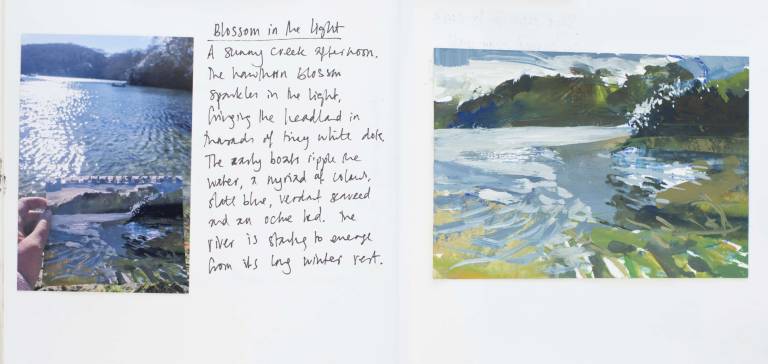 Blossom in the light
A sunny creek afternoon.
The hawthorn blossom
sparkles in the light,
fringing the headland in
thousands of tiny white dots.
The early boats ripple the
water, a myriad of colours,
slate blue, verdant seaweed
and an ochre bed. The
river is starting to emerge
from its long winter rest.